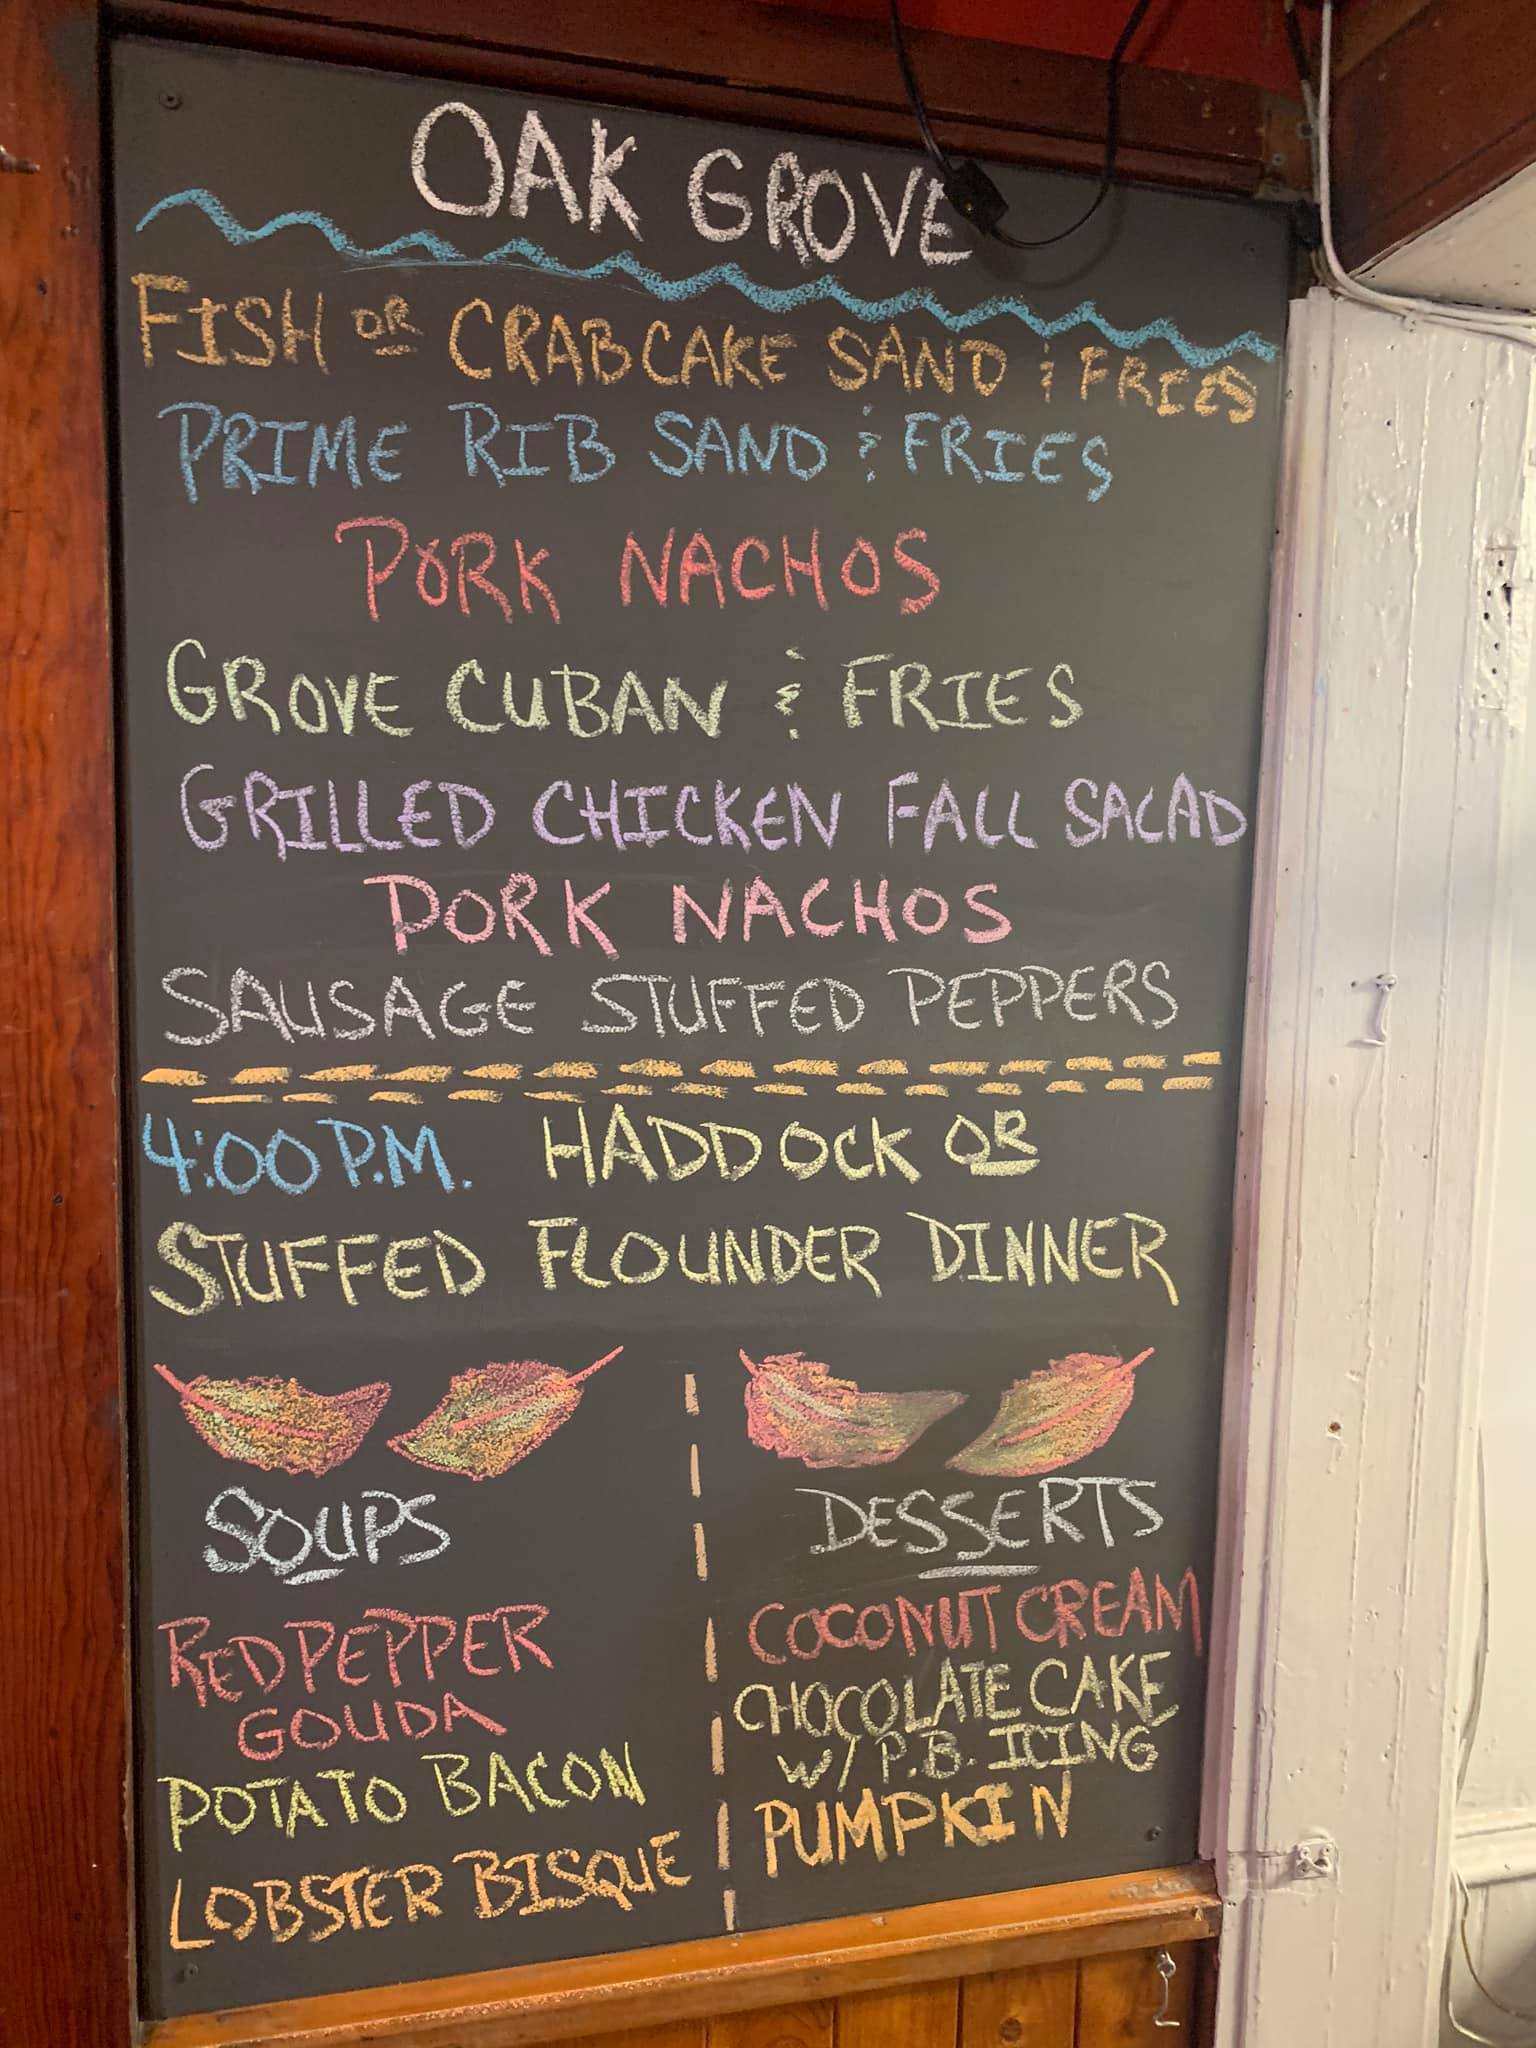 OAK GROVE
FISH OR CRABCAKE SAND & FRIES
PRIME RIB SAND & FRIES
PORK NACHOS
GROVE CUBAN & FRIES
GRILLED CHICKEN FALL SALAD
PORK NACHOS
SAUSAGE STUFFED PEPPERS
4:00 P.M. HADDOCK OR
STUFFED FLOUNDER DINNER
SOUPS
RED PEPPER
GOUDA
POTATO BACON
LOBSTER BISQUE
DESSERTS
COCONUT CREAM
CHOCOLATE CAKE
W/ P.B. ICING
PUMPKIN